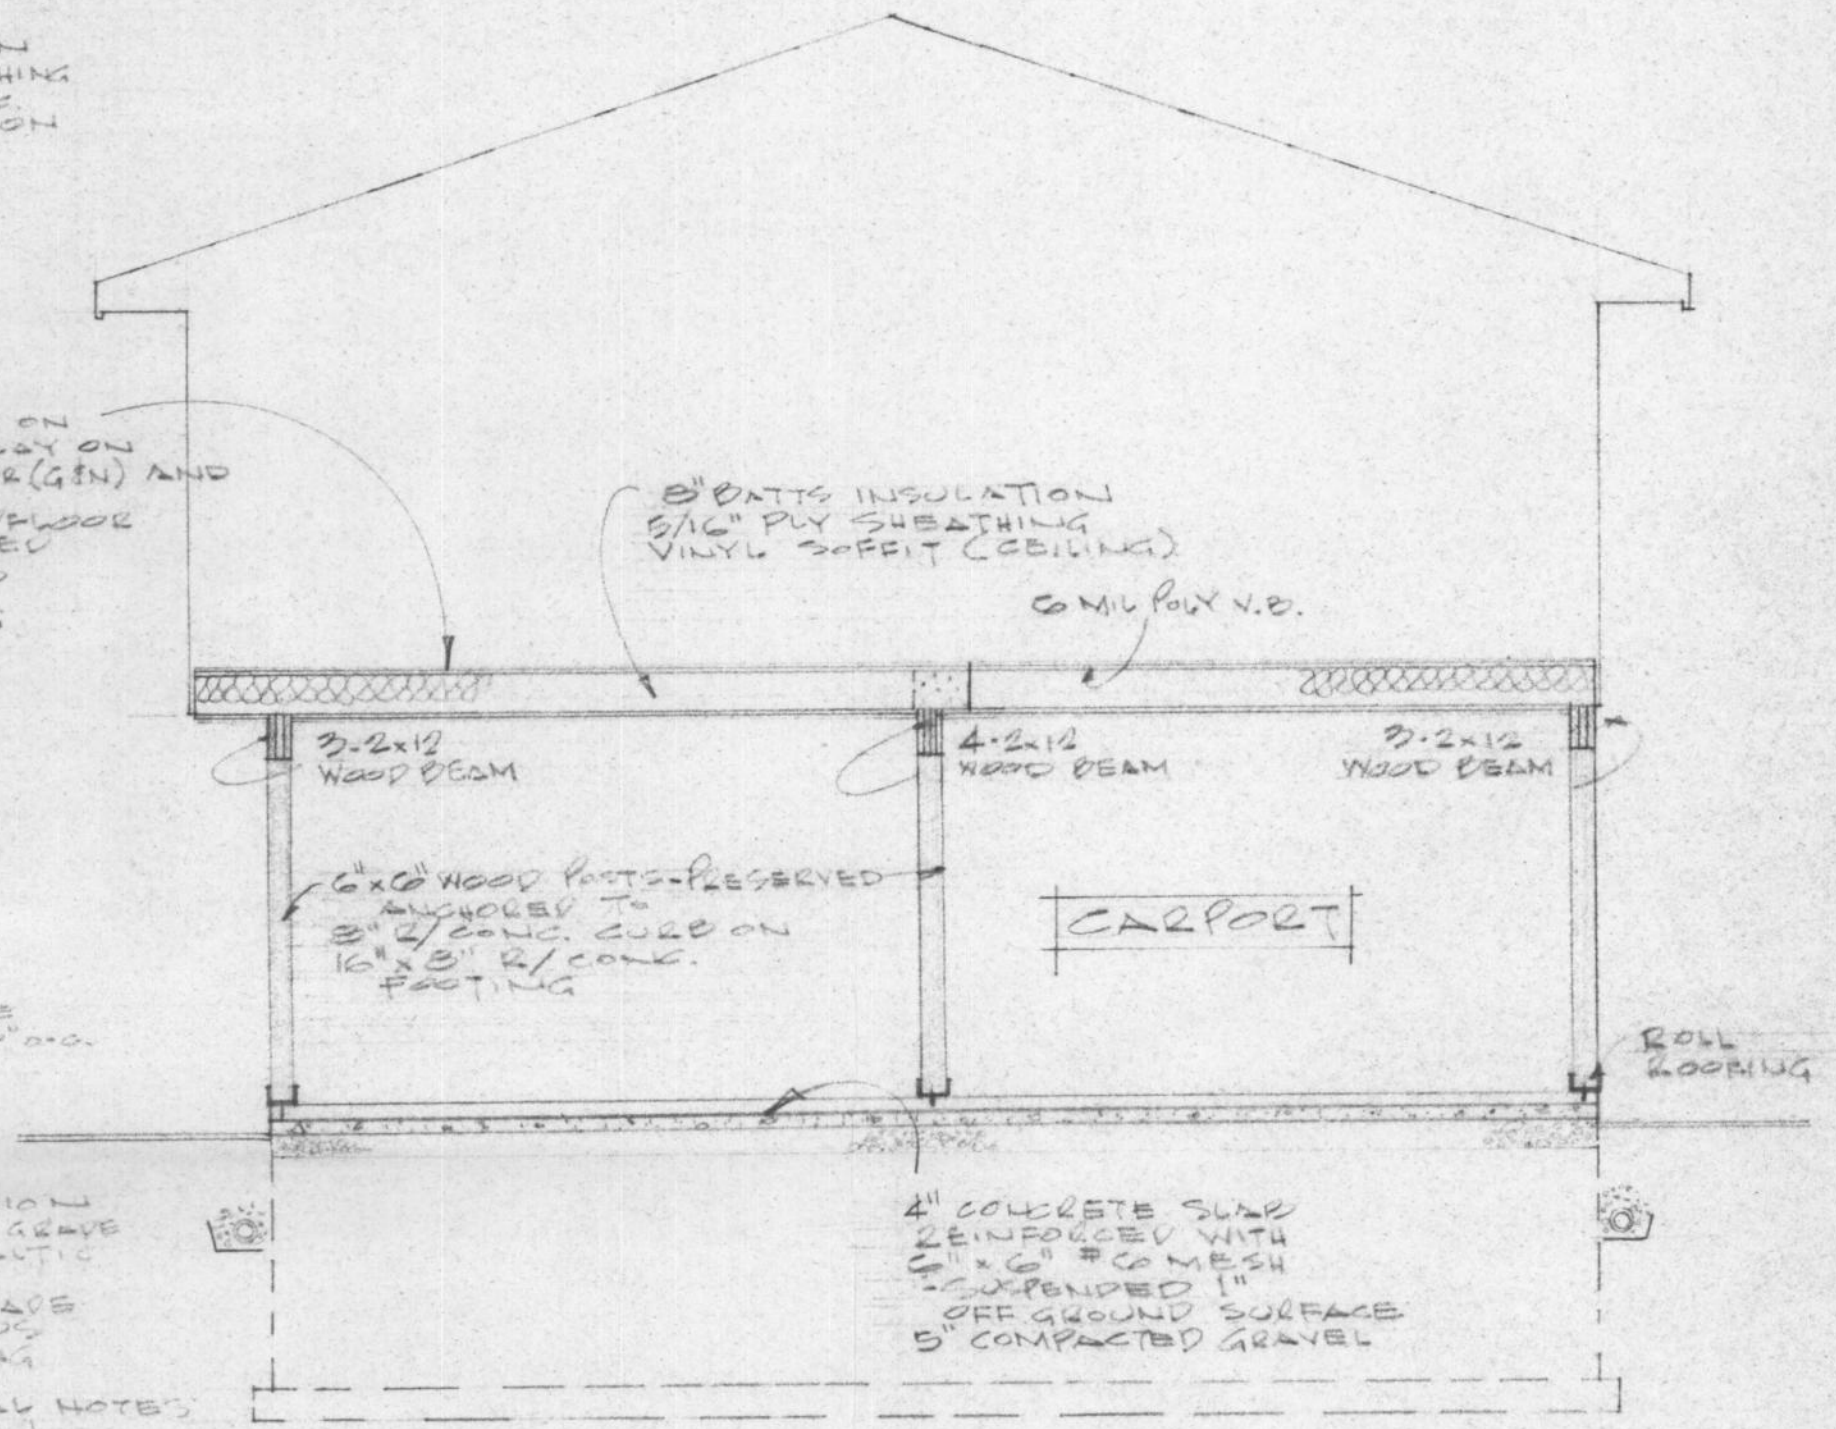 HING
ON
ON
LAY ON
R (G&N) AND
/FLOOR
8" BATTS INSULATION
5/16" PLY SHEATHING
VINYL SOFFIT (CEILING)
6 MIL POLY V.B.
3-2x12
WOOD BEAM
4-2x12
WOOD BEAM
3-2x12
WOOD BEAM
6"x6" WOOD POSTS-PRESERVED
ANCHORED TO
8" R/CONC. CURB ON
16" x 8" R/CONC.
FOOTING
CARPORT
O.G.
ROLL
ROOFING
ION
GRADE
ALTIC
ADE
4" CONCRETE SLAB
REINFORCED WITH
6" x 6" #6 MESH
-SUSPENDED 1"
OFF GROUND SURFACE
5" COMPACTED GRAVEL
LL NOTES